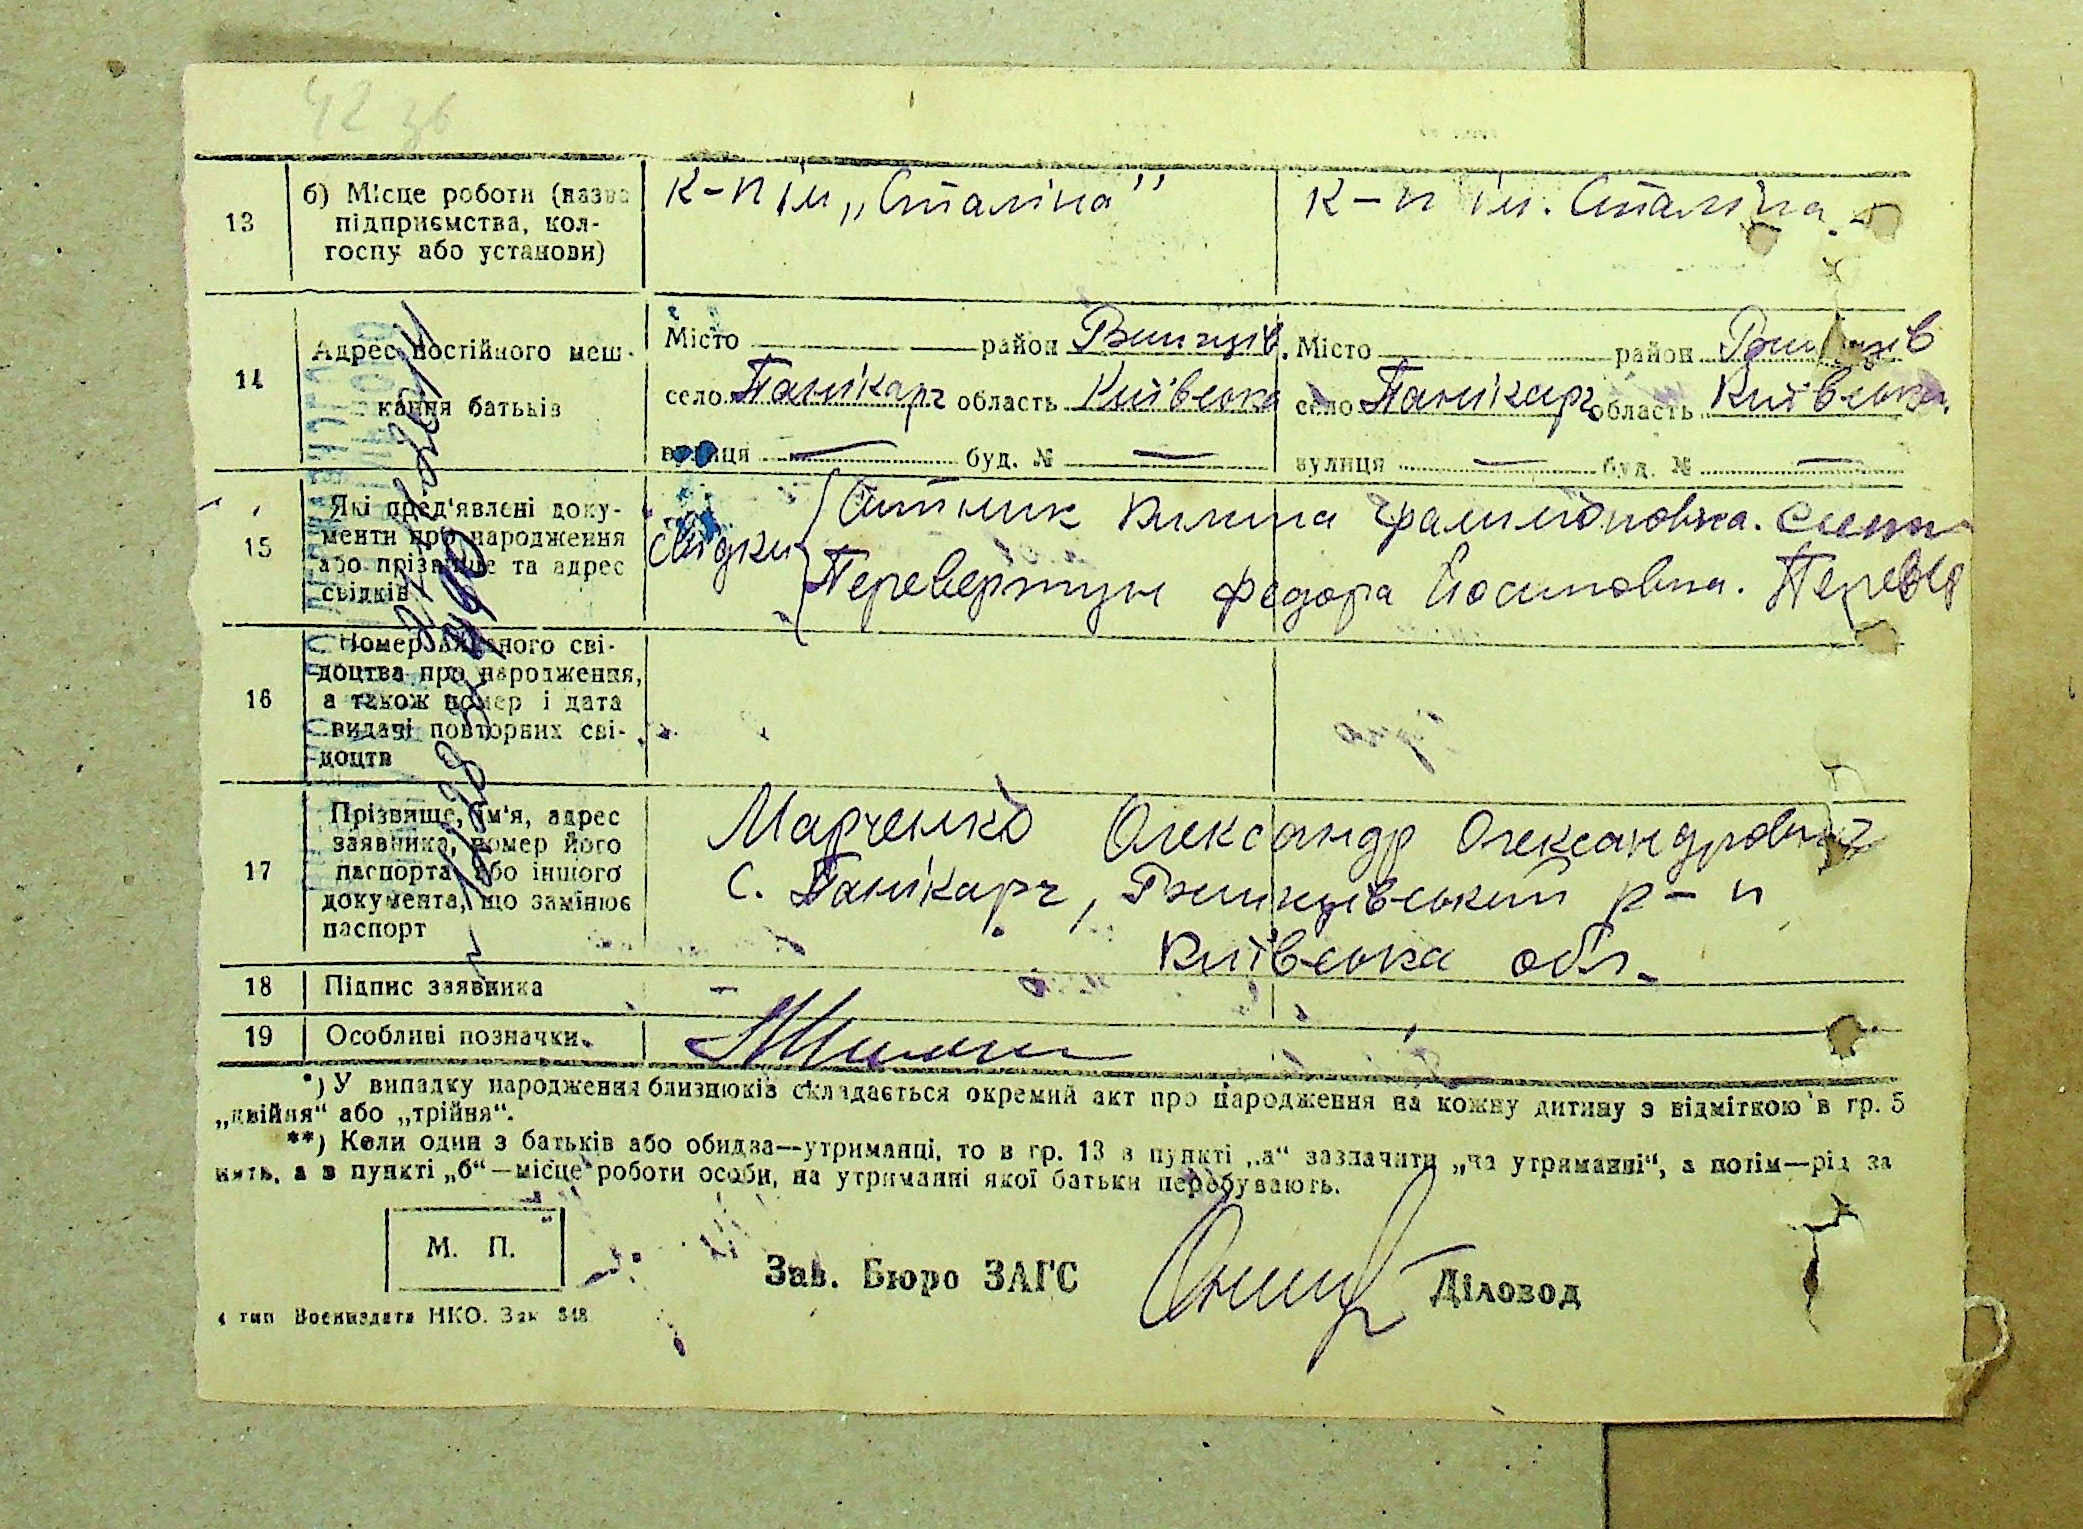 42 зв
13
б) Місце роботи (назва підприємства, колгоспу або установи)
к-п ім „Сталіна”
к-п ім. Сталіна.
14
Адрес постійного меш-
кання батьків
Місто район Ржищів.
село Панікарч область Київська
вулиця — буд. № —
Місто район Ржищів
село Панікарч область Київська.
вулиця — буд. № —
15
Які пред'явлені доку-
менти про народження
або прізвище та адрес
свідків
свідки
Ситник Килина
Перевертун Федора Йосиповна.
16
Номер виданого сві-
доцтва про народження,
а також номер і дата
видачі повторних сві-
доцтв
17
Прізвище, ім'я, адрес
заявника, номер його
паспорта або іншого
документа, що замінює
паспорт
Марченко Олександр Олександрович
с. Панікарч, Ржищівський р-н
Київська обл.
18
Підпис заявника
19
Особливі позначки.
*) У випадку народження близнюків складається окремий акт про народження на кожну дитину з відміткою в гр. 5
„двійня“ або „трійня“.
**) Коли один з батьків або обидва—утриманці, то в гр. 13 в пункті „а“ зазначити „на утриманні“, а потім—рід за
нять, а в пункті „б“—місце роботи особи, на утриманні якої батьки перебувають.
М. П.
Зав. Бюро ЗАГС
Діловод
4 тип Воениздата НКО. Зак 348